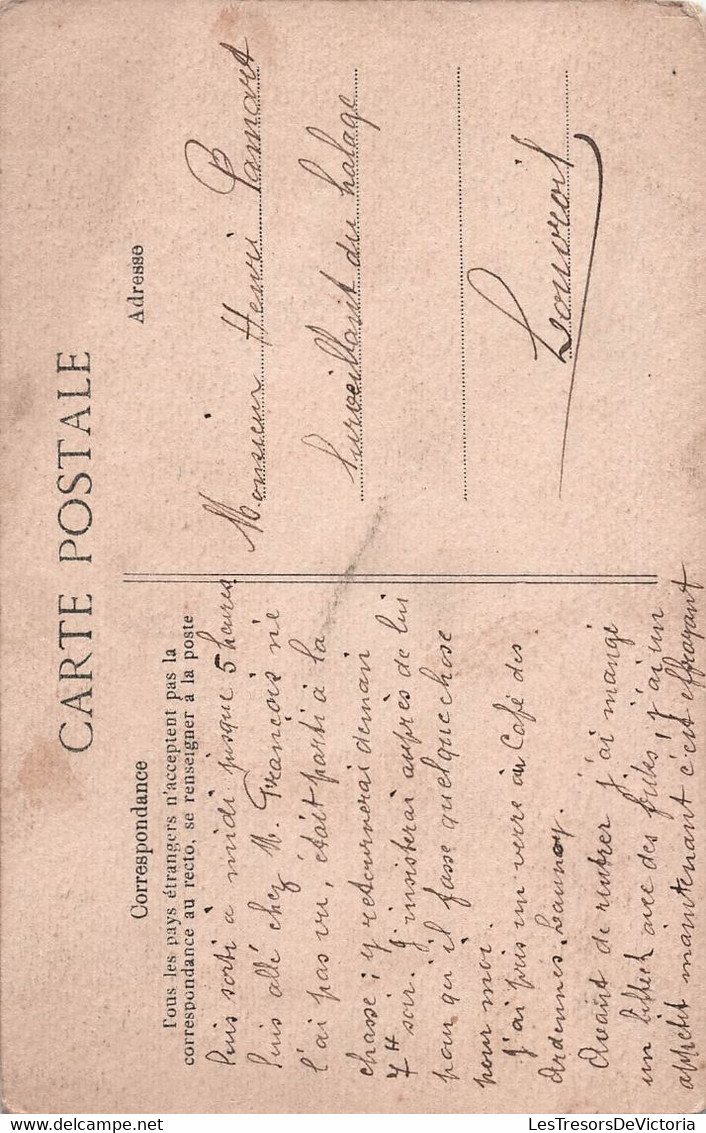 CARTE POSTALE
Correspondance
Tous les pays étrangers n'acceptent pas la
correspondance au recto, se renseigner à la poste
Suis sorti à midi jusque 5 heures
Suis allé chez M. François ne
l'ai pas vu, était parti à la
chasse; y retournerai demain
7H soir. J'insisterai auprès de lui
pour qu'il fasse quelque chose
pour moi.
J'ai pris un verre au Café des
Ardennes. Launoy.
Avant de rentrer j'ai mangé
un bifteck avec des frites; j'ai un
appetit maintenant c'est effrayant
Adresse
Monsieur Henri Pamart
Surveillant du halage
Louvroil
LesTresorsDeVictoria